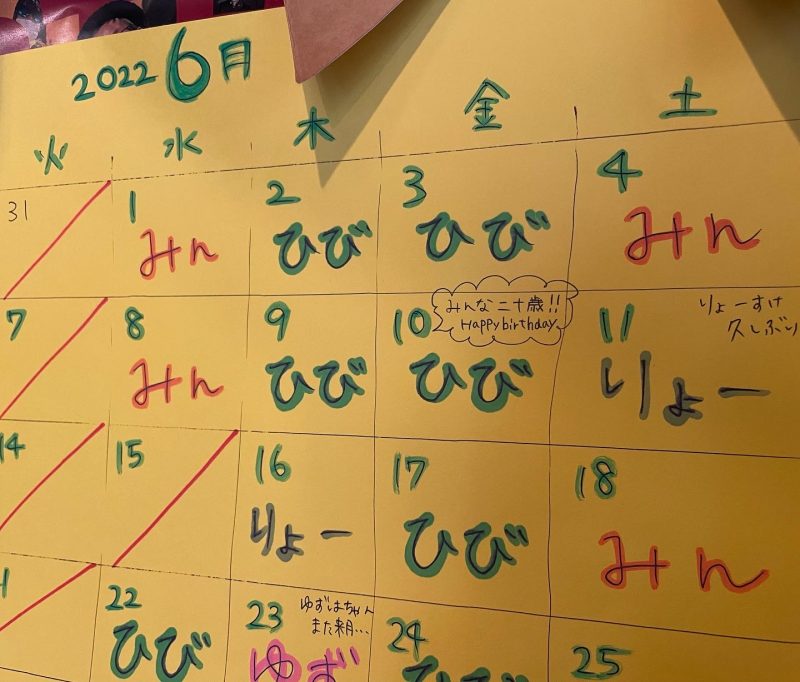 2022 6月
火 水 木 金 土
31 1 2 3 4
みん ひび ひび みん
7 8 9 10 11
みんな二十歳!!
Happy birthday
りょーすけ
久しぶり
みん ひび ひび りょー
14 15 16 17 18
りょー ひび みん
22 23 24 25
ゆずはちゃん
また来月…
ひび ゆず ひび